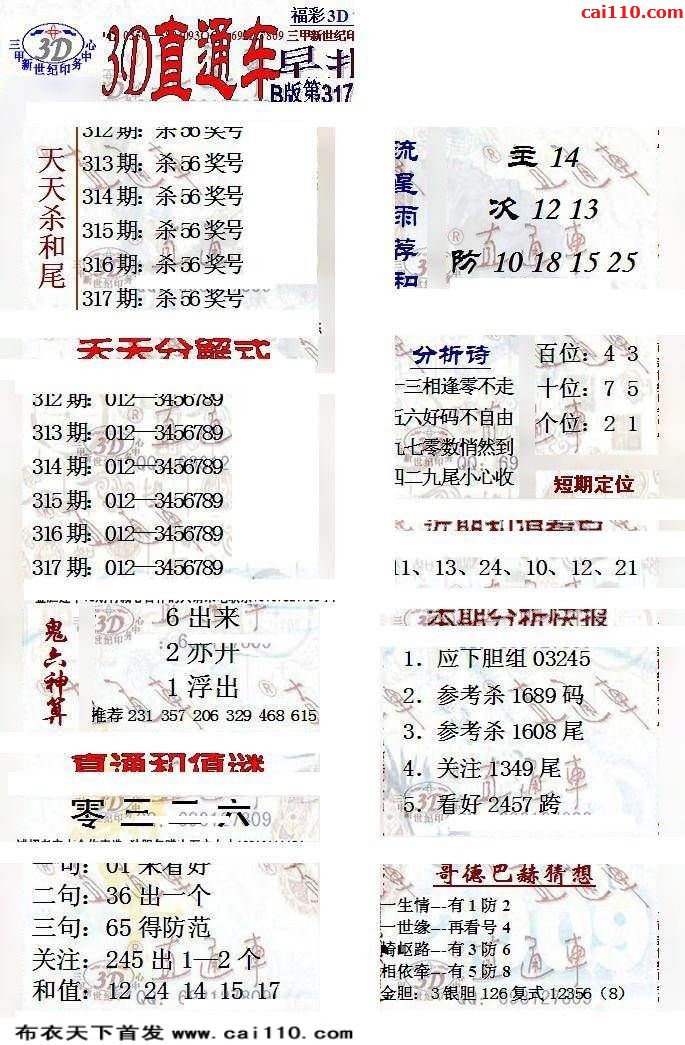 cai110.com
福彩3D
三甲新世纪印务中心
3D
3D直通车
早
B版第317
天天杀和尾
312期：杀56奖号
313期：杀56奖号
314期：杀56奖号
315期：杀56奖号
316期：杀56奖号
317期：杀56奖号
流星雨荐和
主 14
次 12 13
防 10 18 15 25
天天分解式
312期：012—3456789
313期：012—3456789
314期：012—3456789
315期：012—3456789
316期：012—3456789
317期：012—3456789
分析诗
一三相逢零不走
五六好码不自由
九七零数悄然到
四二九尾小心收
百位：4 3
十位：7 5
个位：2 1
短期定位
11、13、24、10、12、21
鬼六神算
6出来
2亦开
1浮出
推荐 231 357 206 329 468 615
本期分析快报
1．应下胆组 03245
2．参考杀 1689 码
3．参考杀 1608 尾
4．关注 1349 尾
5．看好 2457 跨
直通和值谜
零三二六
一句：01 来看好
二句：36 出一个
三句：65 得防范
关注：245 出 1—2 个
和值：12 24 14 15 17
哥德巴赫猜想
一生情---有 1 防 2
一世缘---再看号 4
崎岖路---有 3 防 6
相依牵---有 5 防 8
金胆：3 银胆 126 复式 12356（8）
布衣天下首发 www.cai110.com